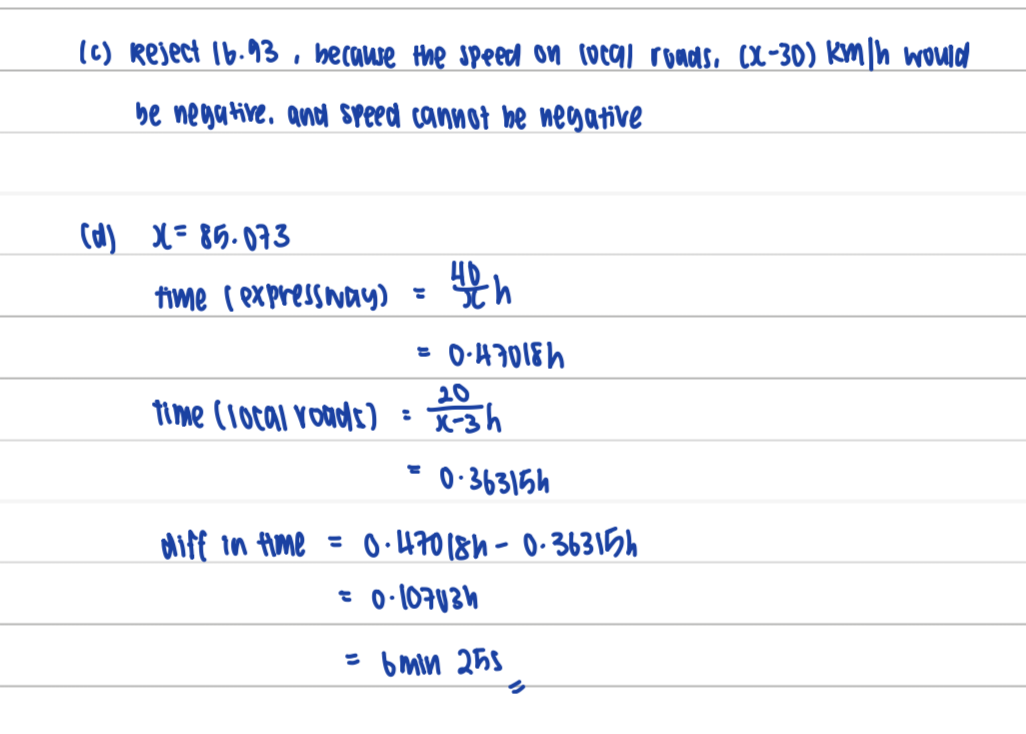 (c) Reject 16.93, because the speed on local roads, (x-30) km/h would
be negative. and speed cannot be negative
(d) x = 85.073
time (expressway) = 40/x h
= 0.47018h
time (local roads) = 20/x-3 h
= 0.36315h
diff in time = 0.47018h - 0.36315h
= 0.10703h
= 6min 25s